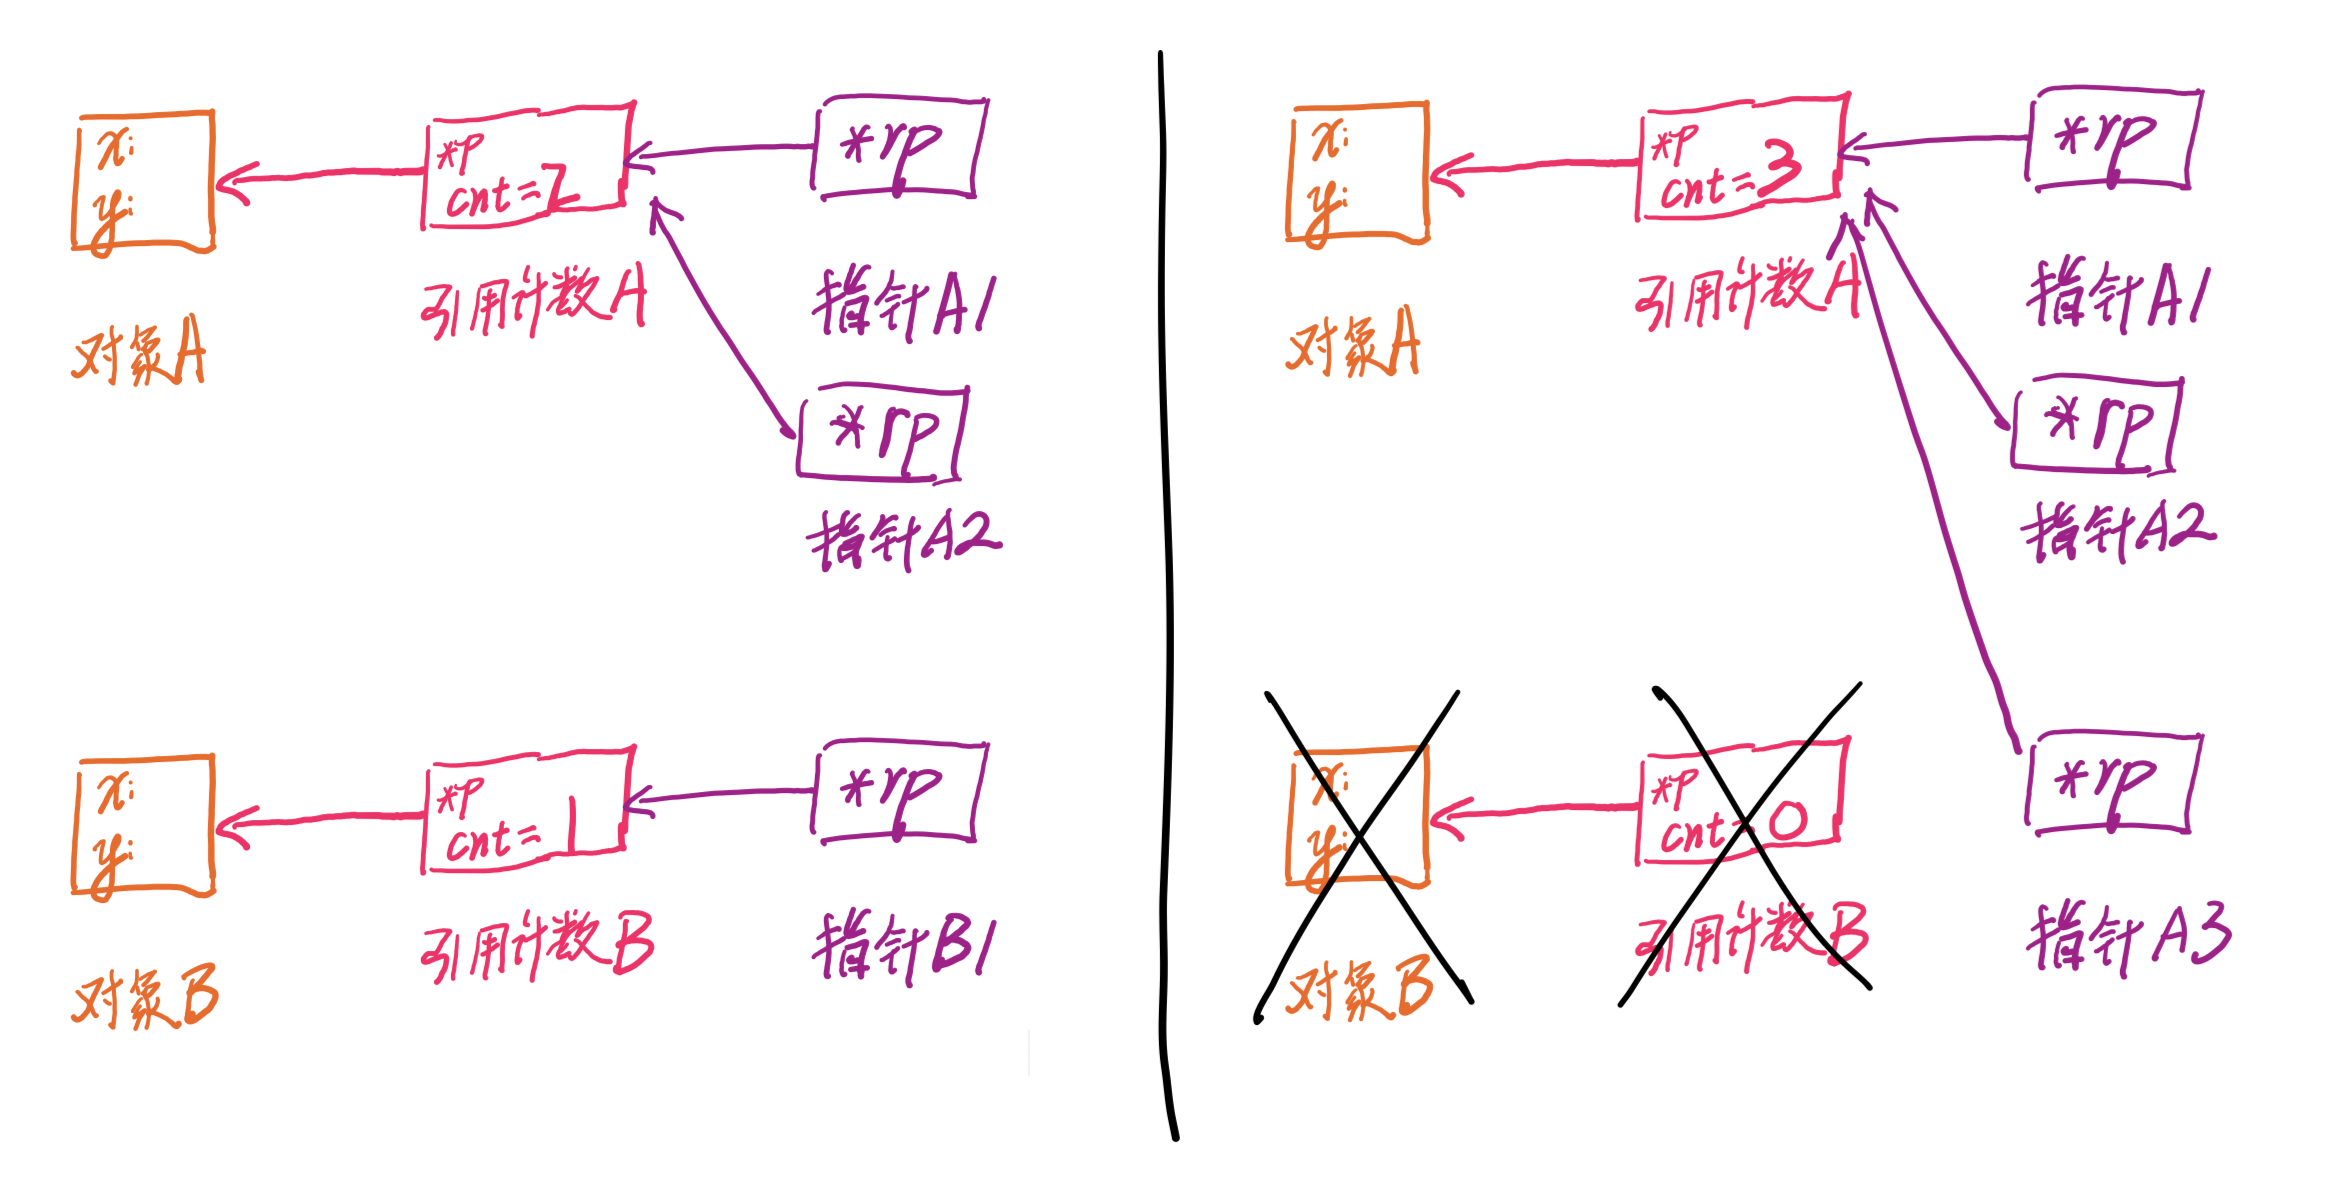 x:
y:
对象A
*p
cnt=2
引用计数A
*rp
指针A1
*rp
指针A2
x:
y:
对象B
*p
cnt=1
引用计数B
*rp
指针B1
x:
y:
对象A
*p
cnt=3
引用计数A
*rp
指针A1
*rp
指针A2
x:
y:
对象B
*p
cnt=0
引用计数B
*rp
指针A3